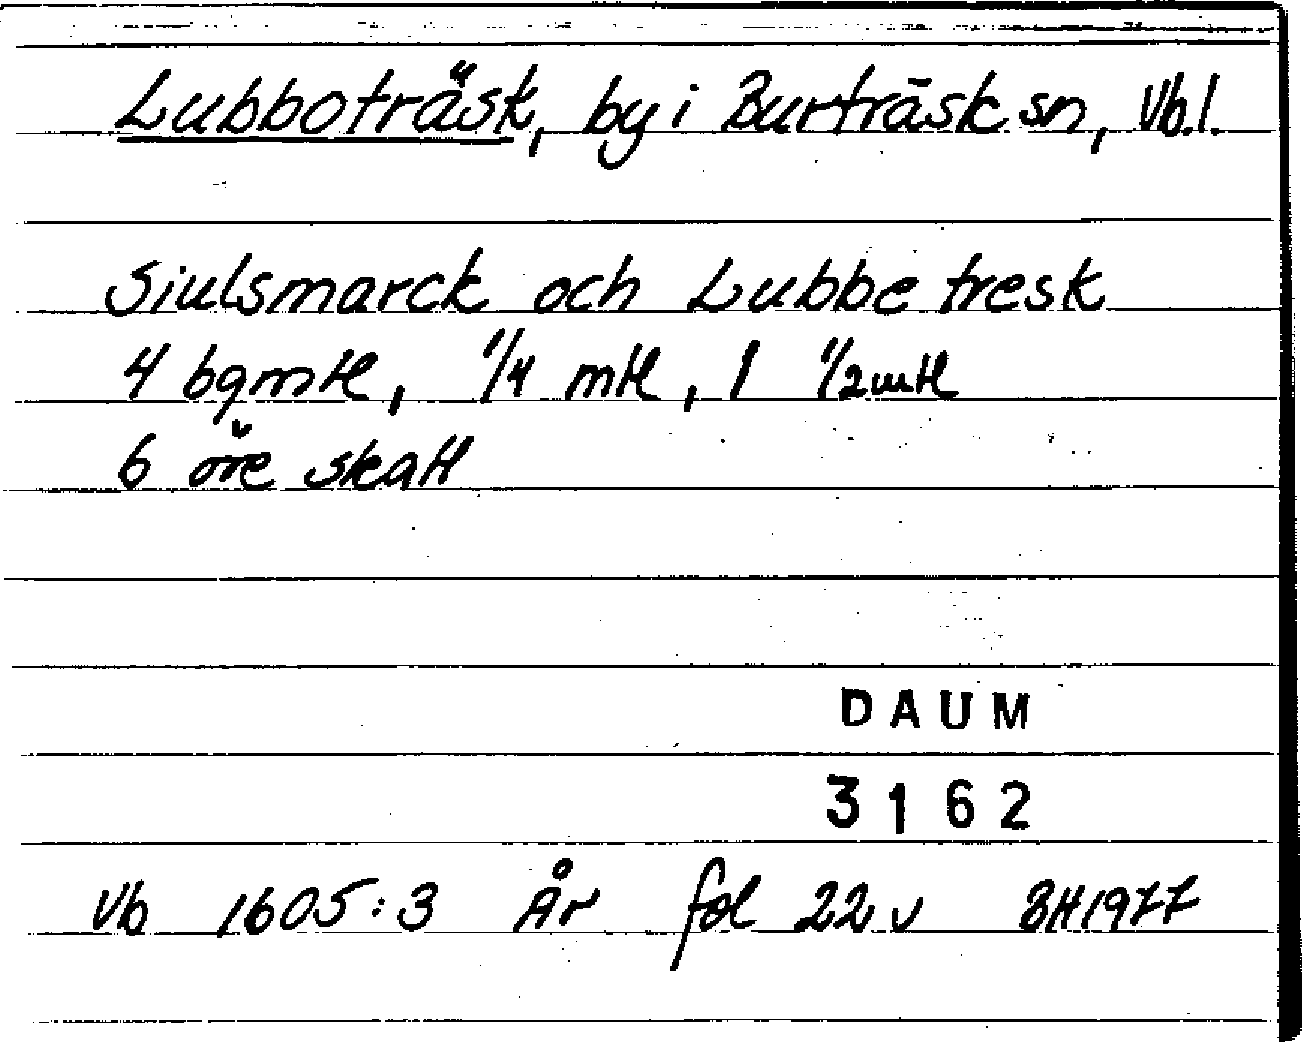 Lubboträsk, by i Burträsk sn, Vb.l.
Siulsmarck och Lubbe tresk
4 bgmtl, 1/4 mtl, 1 1/2 mtl
6 öre skatt
DAUM
3162
Vb 1605:3 År fol 22 v BH1977